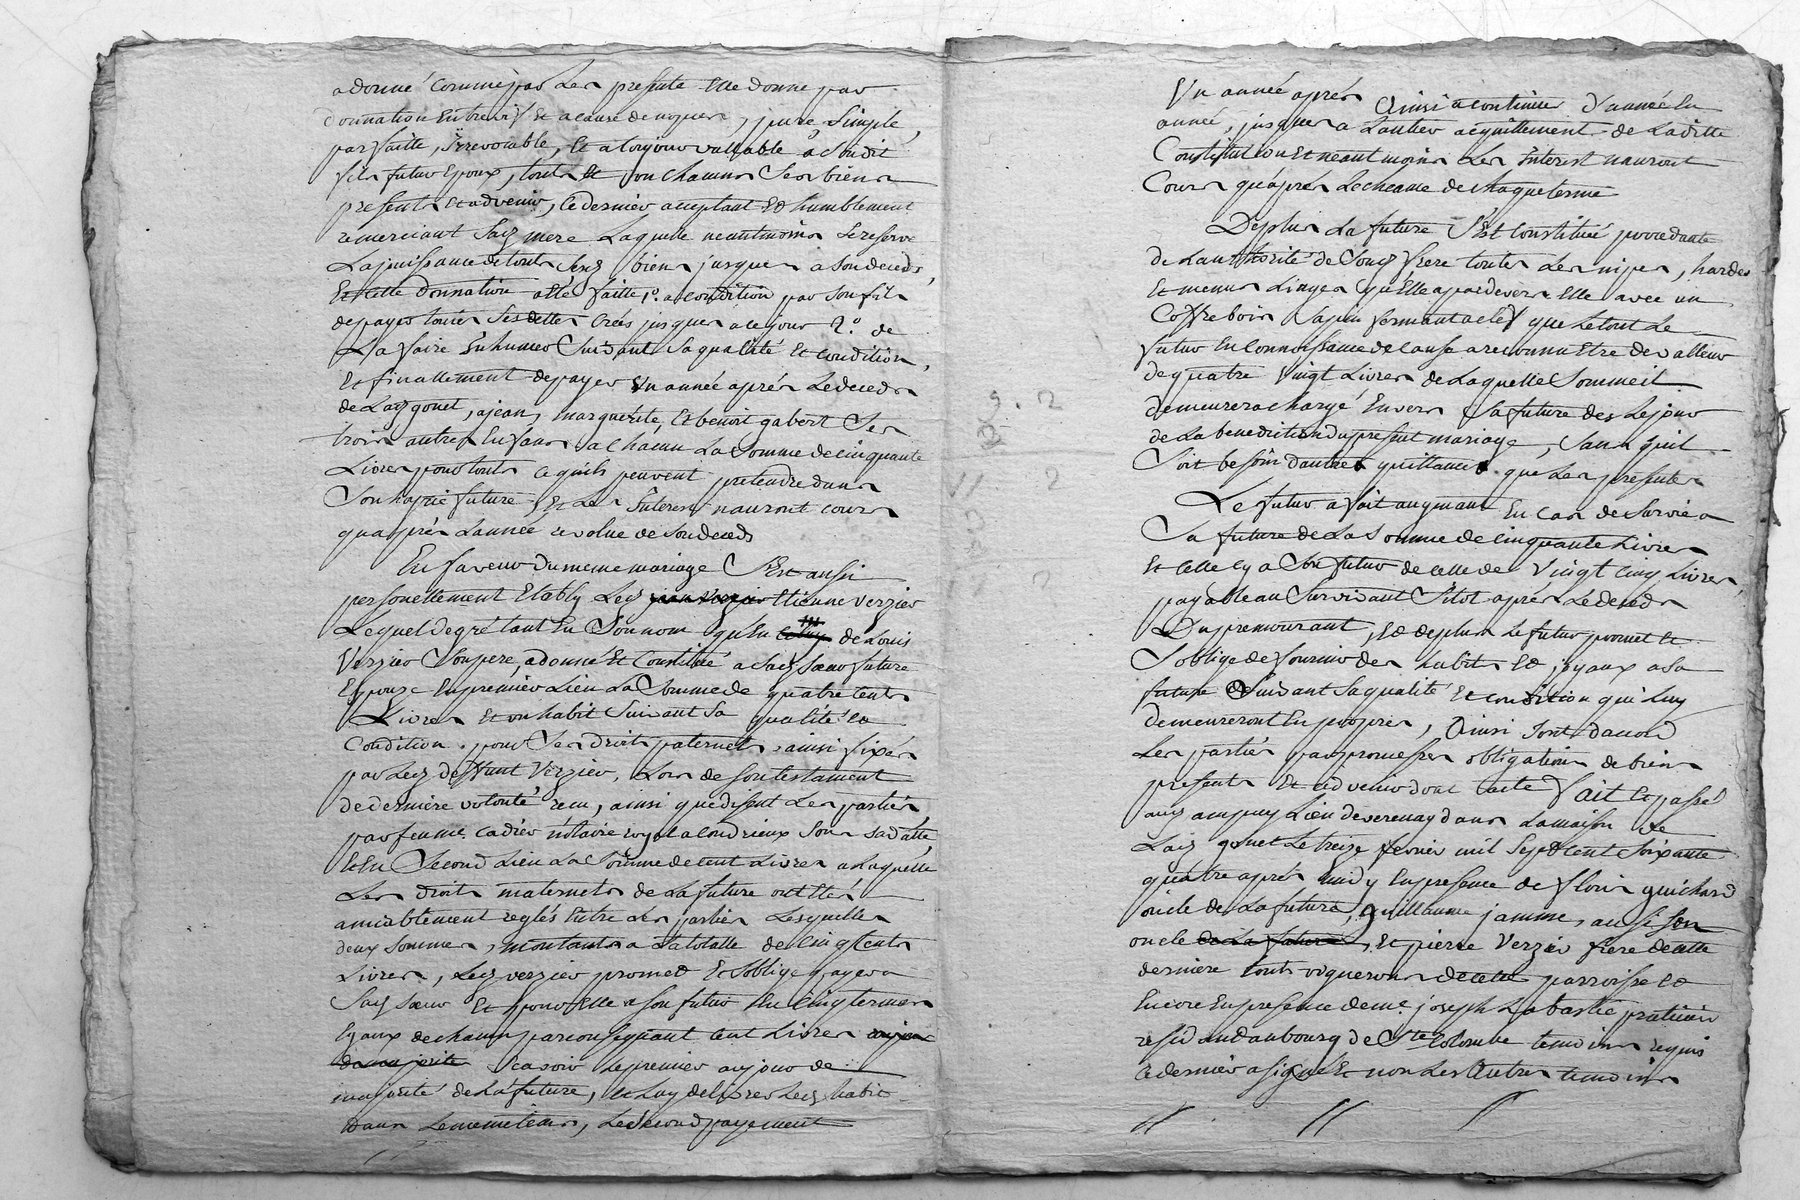 a donné comme par les presente elle donne par
donnation entrevif et a cause de nopces, pure simple,
parfaitte, irrevocable, et a toujours vallable a sondit
fils futur epoux, touts et un chacuns ses biens
presents et advenir, ce dernier acceptant et humblement
remerciant sad mere laquelle neantmoins se reserve
la jouissance de touts sesd biens jusques a son deceds,
et cette donnation a été faitte 1o. a condition par son fils
de payer toutes ses dettes crées jusques a ce jour 2o. de
la faire enhumer suivant sa qualité et condition,
et finallement de payer un année après le deceds
de lad gonet, a jean, marguerite, et benoit gabert ses
trois autres enfans a chacun la somme de cinquante
livres pour touts ce qu'ils peuvent pretendre dans
son hoirie future et les interest n'auront cours
qu'après l'année revolue de son deceds
En faveur du meme mariage s'est aussi
personellement etably led jean verzier Etienne verzier
lequel de gré tant en son nom qu'en celuy de Louis
Verzier son pere, a donné et constitué a sad sœur future
epouse en premier lieu la somme de quatre cents
livres et un habit suivant sa qualité et
condition, pour ses droits paternels, ainsi fixés
par led deffunt Verzier, lors de son testament
de derniere volonté recu, ainsi que disent les parties
par feu me cadier notaire royal a condrieux sous sa datte
et en second lieu la somme de cent livres a laquelle
les droits maternels de la future ont été
amiablement reglés entre les parties lesquelles
deux sommes, montants a la totalle de cinq cents
livres, led verzier promet et s'oblige payer a
sad sœur et pour elle a son futur en cinq termes
egaux de chacun par consequant cent livres
de majorité scavoir le premier au jour de
majorité de la future, et luy delivrer led habit
dans le meme tems, le second payement
Un année après ainsi a continuer d'année en
année, jusques a l'entier acquittement de ladite
constitution et neantmoins les interest n'auront
cours qu'après l'echeance de chaque terme
De plus la future s'est constituée procedante
de l'authorité de soud frere toutes les nipes, hardes
et menus linges qu'elle a pardevers elle avec un
coffre bois sapin fermant a clef que le tout le
futur en connoissance de cause a reconnu etre de valleur
de quatre vingt livres de laquelle somme il
demeurera chargé envers sa future des le jour
de la benediction du present mariage, sans qu'il
soit besoin d'autres quittances que les presentes
Le futur a fait augmant en cas de survie a
sa future de la somme de cinquante livres
et celle cy a son futur de celle de vingt cinq livres
payable au survivant sitot après le deceds
du premourant, et de plus le futur promet et
s'oblige de fournir des habits et joyaux a sa
future suivant sa qualité et condition qui luy
demeureront en propres, ainsi sont d'accord
les parties par promesses obligation de biens
presents et advenir dont acte fait et passé
aud ampuy lieu de verenay dans la maison de
lad gonet le treize fevrier mil sept cent soixante
quatre après midy en presence de floris guichard
oncle de la future, guillaume jamme, aussi son
oncle de la future, et pierre Verzier frere de cette
derniere touts vignerons de cette parroisse et
encore en presence de me. joseph labastie praticien
residant au bourg de Ste Colombe temoins requis
ce dernier a signé et non les autres temoins